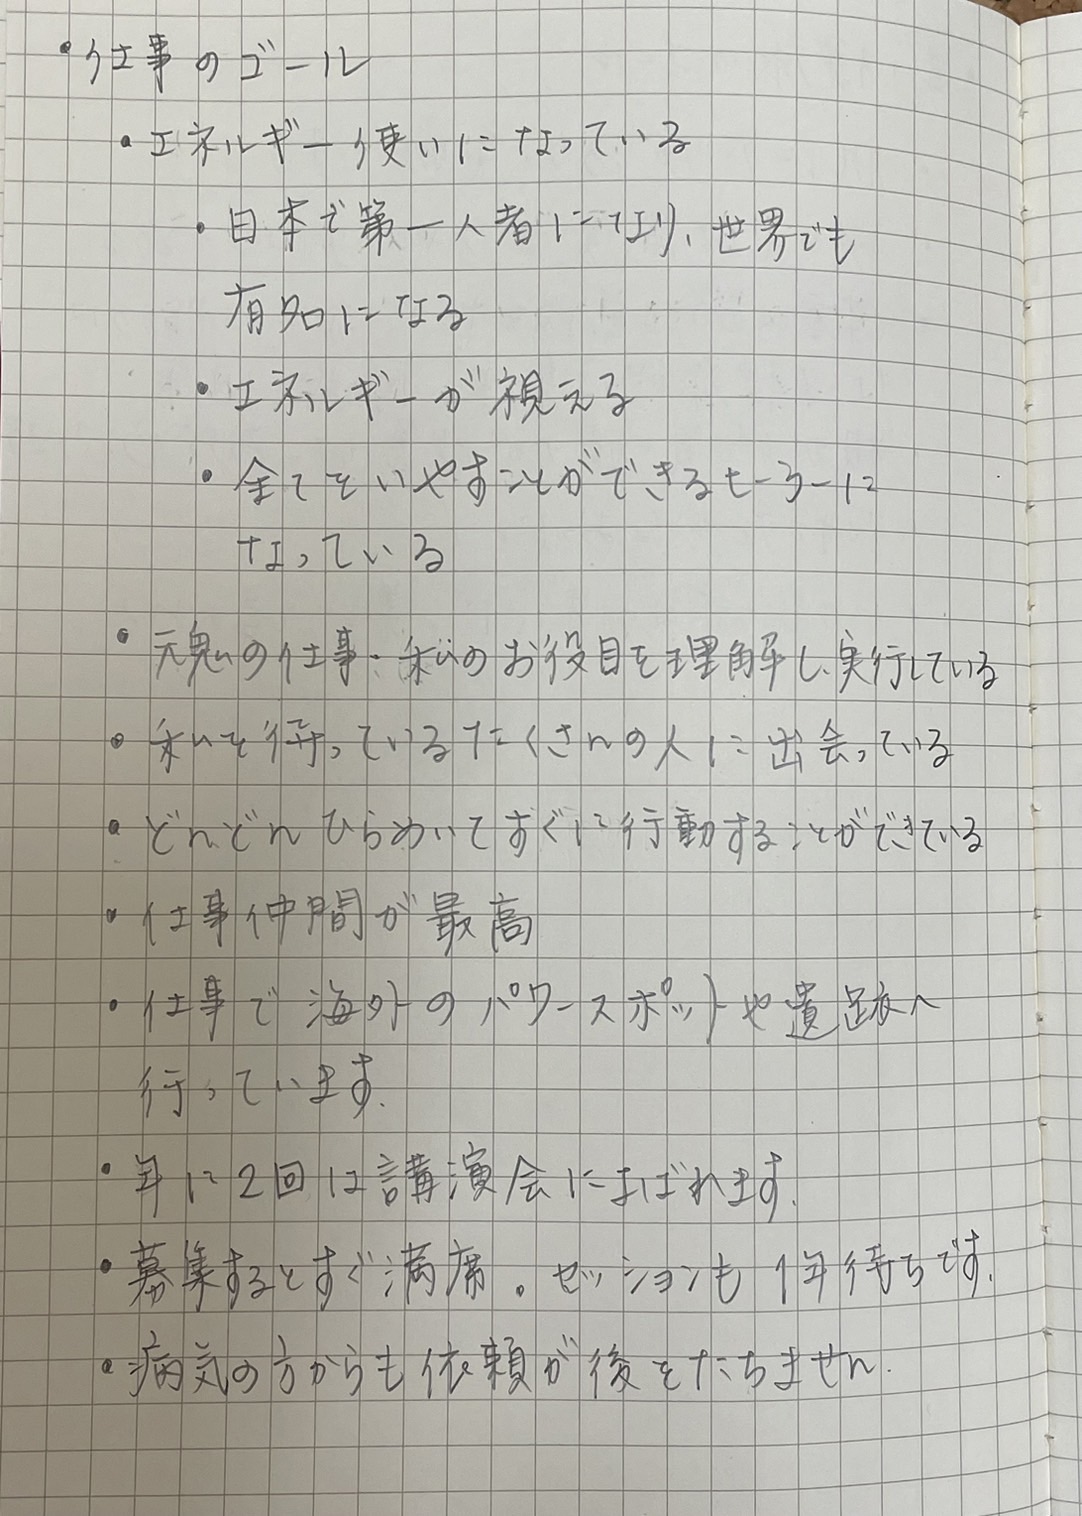 ・仕事のゴール
・エネルギー使いになっている
・日本で第一人者になり、世界でも
有名になる
・エネルギーが視える
・全てをいやすことができるヒーラーに
なっている
・天魂の仕事・私のお役目を理解し、実行している
・私を待っているたくさんの人に出会っている
・どんどんひらめいてすぐに行動することができている
・仕事仲間が最高
・仕事で海外のパワースポットや遺跡へ
行っています。
・年に2回は講演会によばれます。
・募集するとすぐ満席。セッションも1年待ちです。
・病気の方からも依頼が後をたちません。